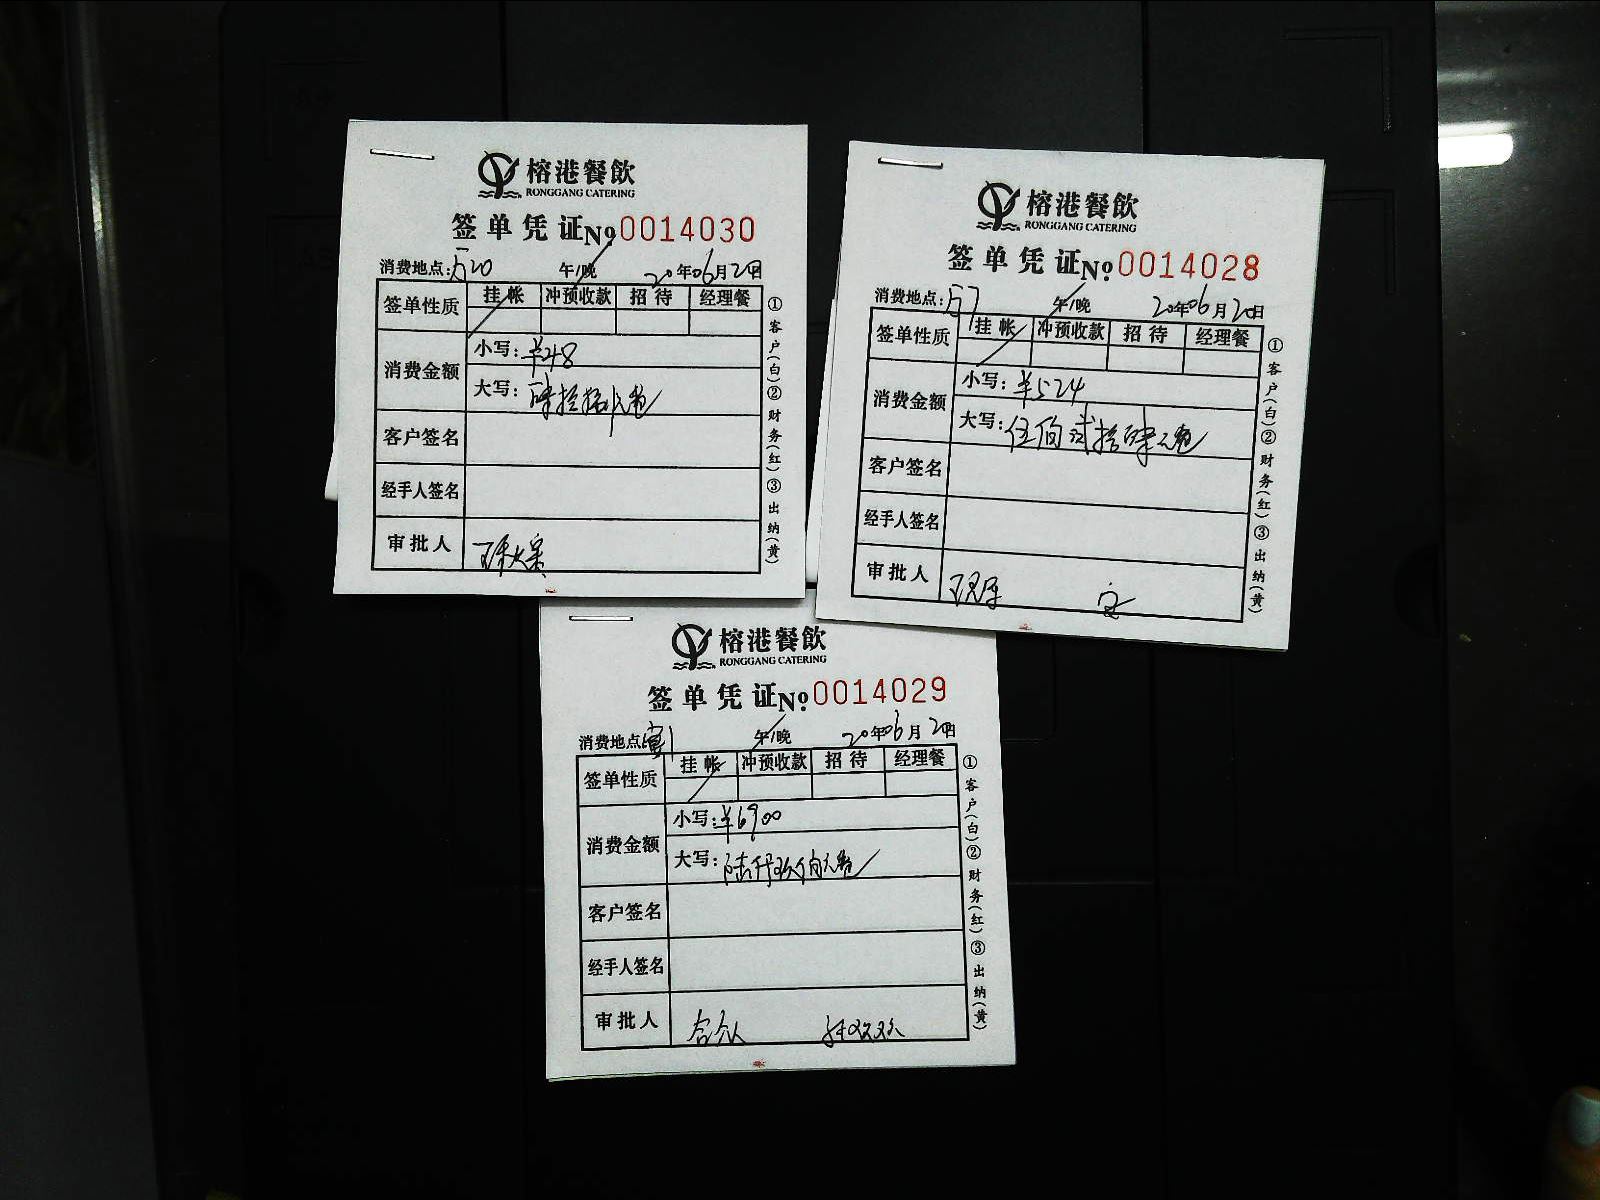 榕港餐飲
RONGGANG CATERING
签单凭证 № 0014030
消费地点: 520 午/晚 20年06月20日
签单性质 挂帐 冲预收款 招待 经理餐
消费金额 小写: ¥48
大写: 肆拾捌元整
客户签名
经手人签名
审批人
①客户(白)②财务(红)③出纳(黄)
榕港餐飲
RONGGANG CATERING
签单凭证 № 0014028
消费地点: 午/晚 20年06月20日
签单性质 挂帐 冲预收款 招待 经理餐
消费金额 小写: ¥524
大写: 伍佰贰拾肆元整
客户签名
经手人签名
审批人
①客户(白)②财务(红)③出纳(黄)
榕港餐飲
RONGGANG CATERING
签单凭证 № 0014029
消费地点: 午/晚 20年06月20日
签单性质 挂帐 冲预收款 招待 经理餐
消费金额 小写: ¥6900
大写: 陆仟玖佰元整
客户签名
经手人签名
审批人
①客户(白)②财务(红)③出纳(黄)